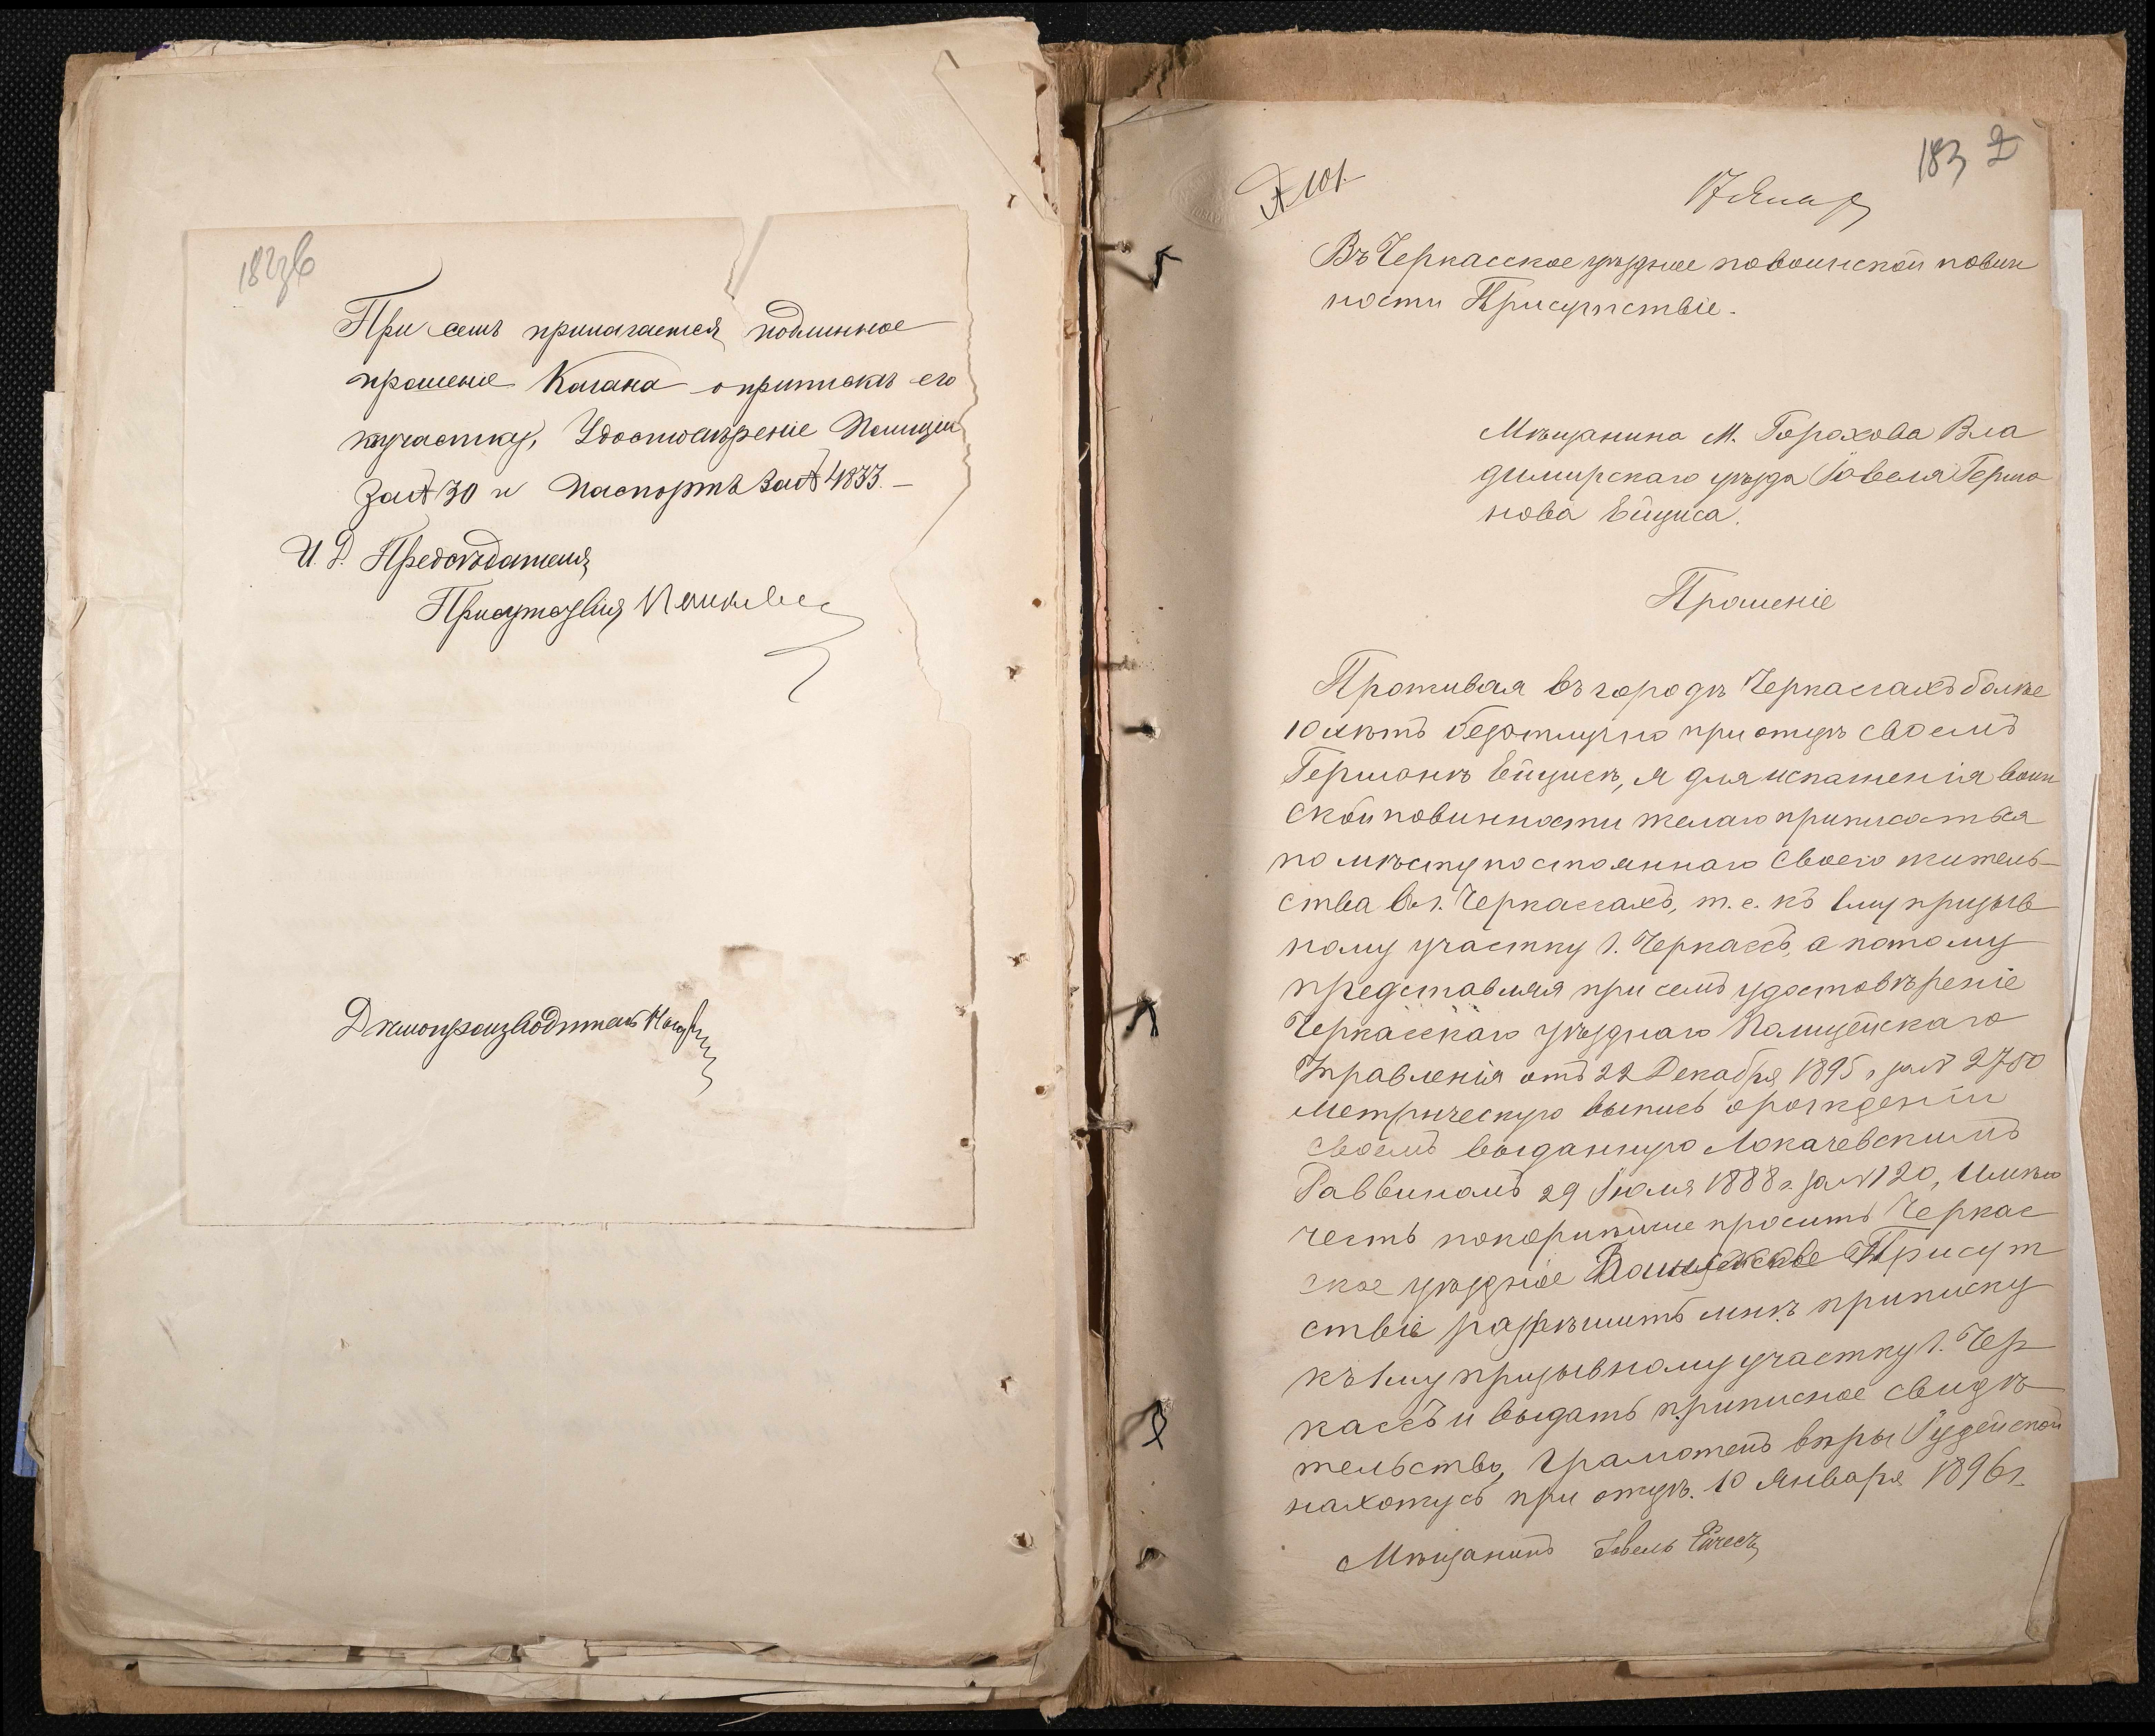 182 об
При семъ прилагается подлинное
прошеніе Кагана о припискѣ его
къ участку, Удостовѣреніе Полиціи
за № 30 и Паспортъ за № 4833. –
И. Д. Предсѣдателя
Присутствія
Дѣлопроизводитель
183 2
№ 101.
17 Январ
Въ Черкасское уѣздное по воинской повин
ности Присутствіе.
Мѣщанина м. Горохова Вла
димирскаго уѣзда Іовеля Герма
нова Ейциса.
Прошеніе
Проживая въ городѣ Черкассахъ болѣе
10 лѣтъ безотлучно при отцѣ своемъ
Германѣ Ейцисѣ, я для исполненія воин
ской повинности желаю приписаться
по мѣсту постояннаго своего житель-
ства в г. Черкассахъ, т. е. къ 1му призыв
ному участку г. Черкассъ, а потому
представляя при семъ удостовѣреніе
Черкасскаго уѣзднаго Полицейскаго
Управленія отъ 22 Декабря 1895 г за № 2750
метрическую выпись о рожденіи
своемъ выданную Локачевскимъ
Раввиномъ 29 Іюля 1888 г. за № 120, имѣю
честь покорнѣйше просить Черкас
ское уѣздное Присут
ствіе разрѣшить мнѣ приписку
къ 1му призывному участку г. Чер
кассъ и выдать приписное свидѣ
тельство, грамотенъ вѣры Іудейской
нахожусь при отцѣ. 10 Января 1896 г.
Мѣщанинъ Іовель Ейцесъ